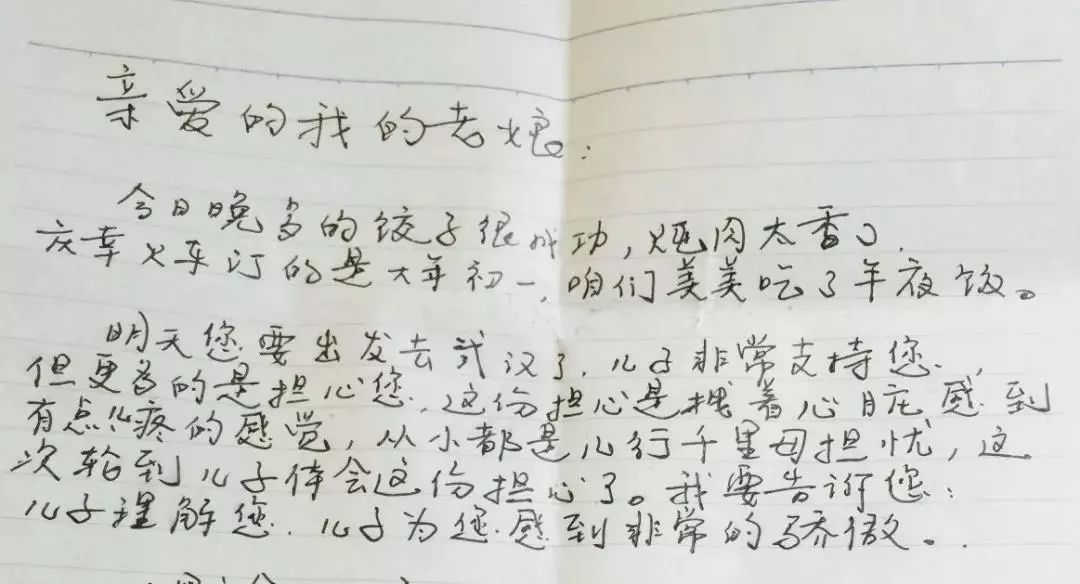 亲爱的我的老娘:
今日晚多的饺子很成功,炖肉太香了.
庆幸火车订的是大年初一,咱们美美吃了年夜饭。
明天您要出发去武汉了,儿子非常支持您,
但更多的是担心您,这份担心是拽着心脏感到
有点儿疼的感觉,从小都是儿行千里母担忧,这
次轮到儿子体会这份担心了。我要告诉您:
儿子理解您.儿子为您感到非常的骄傲。